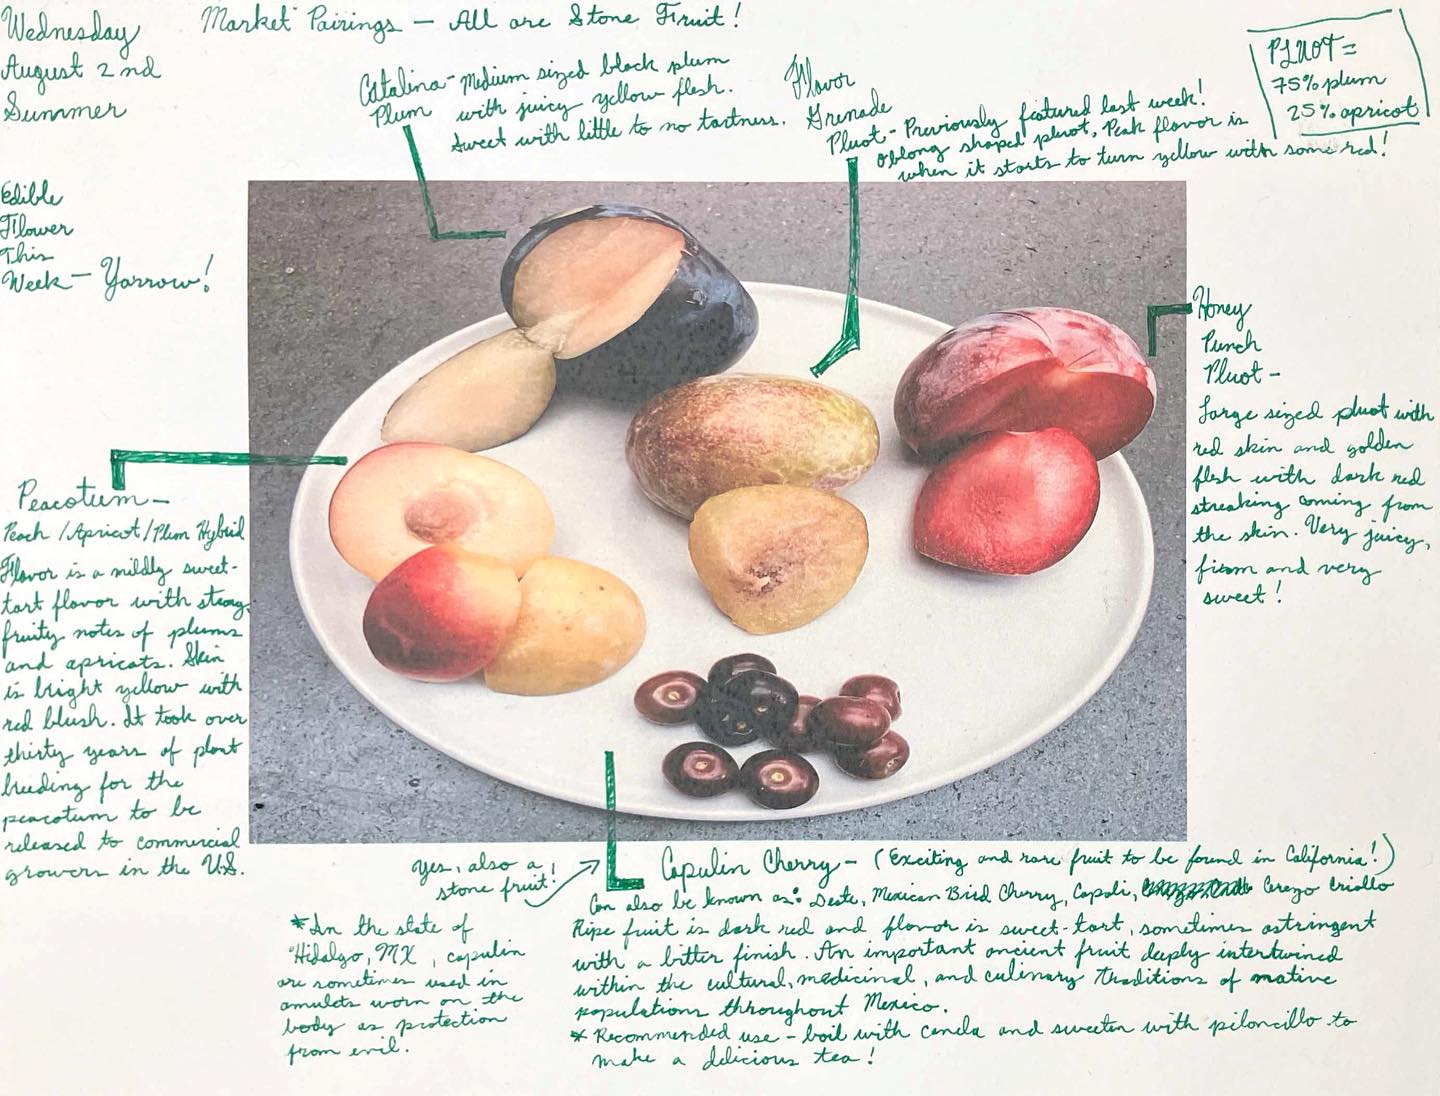 Wednesday
August 2nd
Summer
Market Pairings - All are Stone Fruit!
PLUOT =
75% plum
25% apricot
Catalina - Medium sized black plum
Plum with juicy yellow flesh.
Sweet with little to no tartness.
Flavor
Grenade
Pluot - Previously featured last week!
Oblong shaped pluot, Peak flavor is
when it starts to turn yellow with some red!
Edible
Flower
This
Week - Yarrow!
Honey
Punch
Pluot -
Large sized pluot with
red skin and golden
flesh with dark red
streaking coming from
the skin. Very juicy,
firm and very
sweet!
Peacotum -
Peach / Apricot / Plum Hybrid
Flavor is a mildly sweet-
tart flavor with strong
fruity notes of plums
and apricots. Skin
is bright yellow with
red blush. It took over
thirty years of plant
breeding for the
peacotum to be
released to commercial
growers in the U.S.
yes, also a
stone fruit!
Capulin Cherry - (Exciting and rare fruit to be found in California!)
Can also be known as: Deste, Mexican Bird Cherry, Capoli, Cerezo Criollo
Ripe fruit is dark red and flavor is sweet-tart, sometimes astringent
with a bitter finish. An important ancient fruit deeply intertwined
within the cultural, medicinal, and culinary traditions of native
populations throughout Mexico.
* Recommended use - boil with canela and sweeten with piloncillo to
make a delicious tea!
* In the state of
Hidalgo, MX, capulin
are sometimes used in
amulets worn on the
body as protection
from evil.